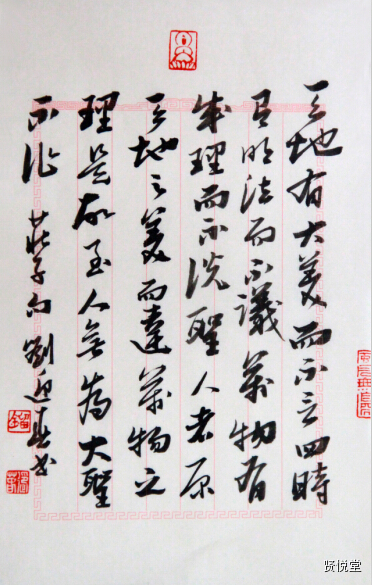 天地有大美而不言四時
有明法而不議萬物有
成理而不說聖人者原
天地之美而達萬物之
理是故至人無為大聖
不作 莊子句 劉迎春書
贤悦堂